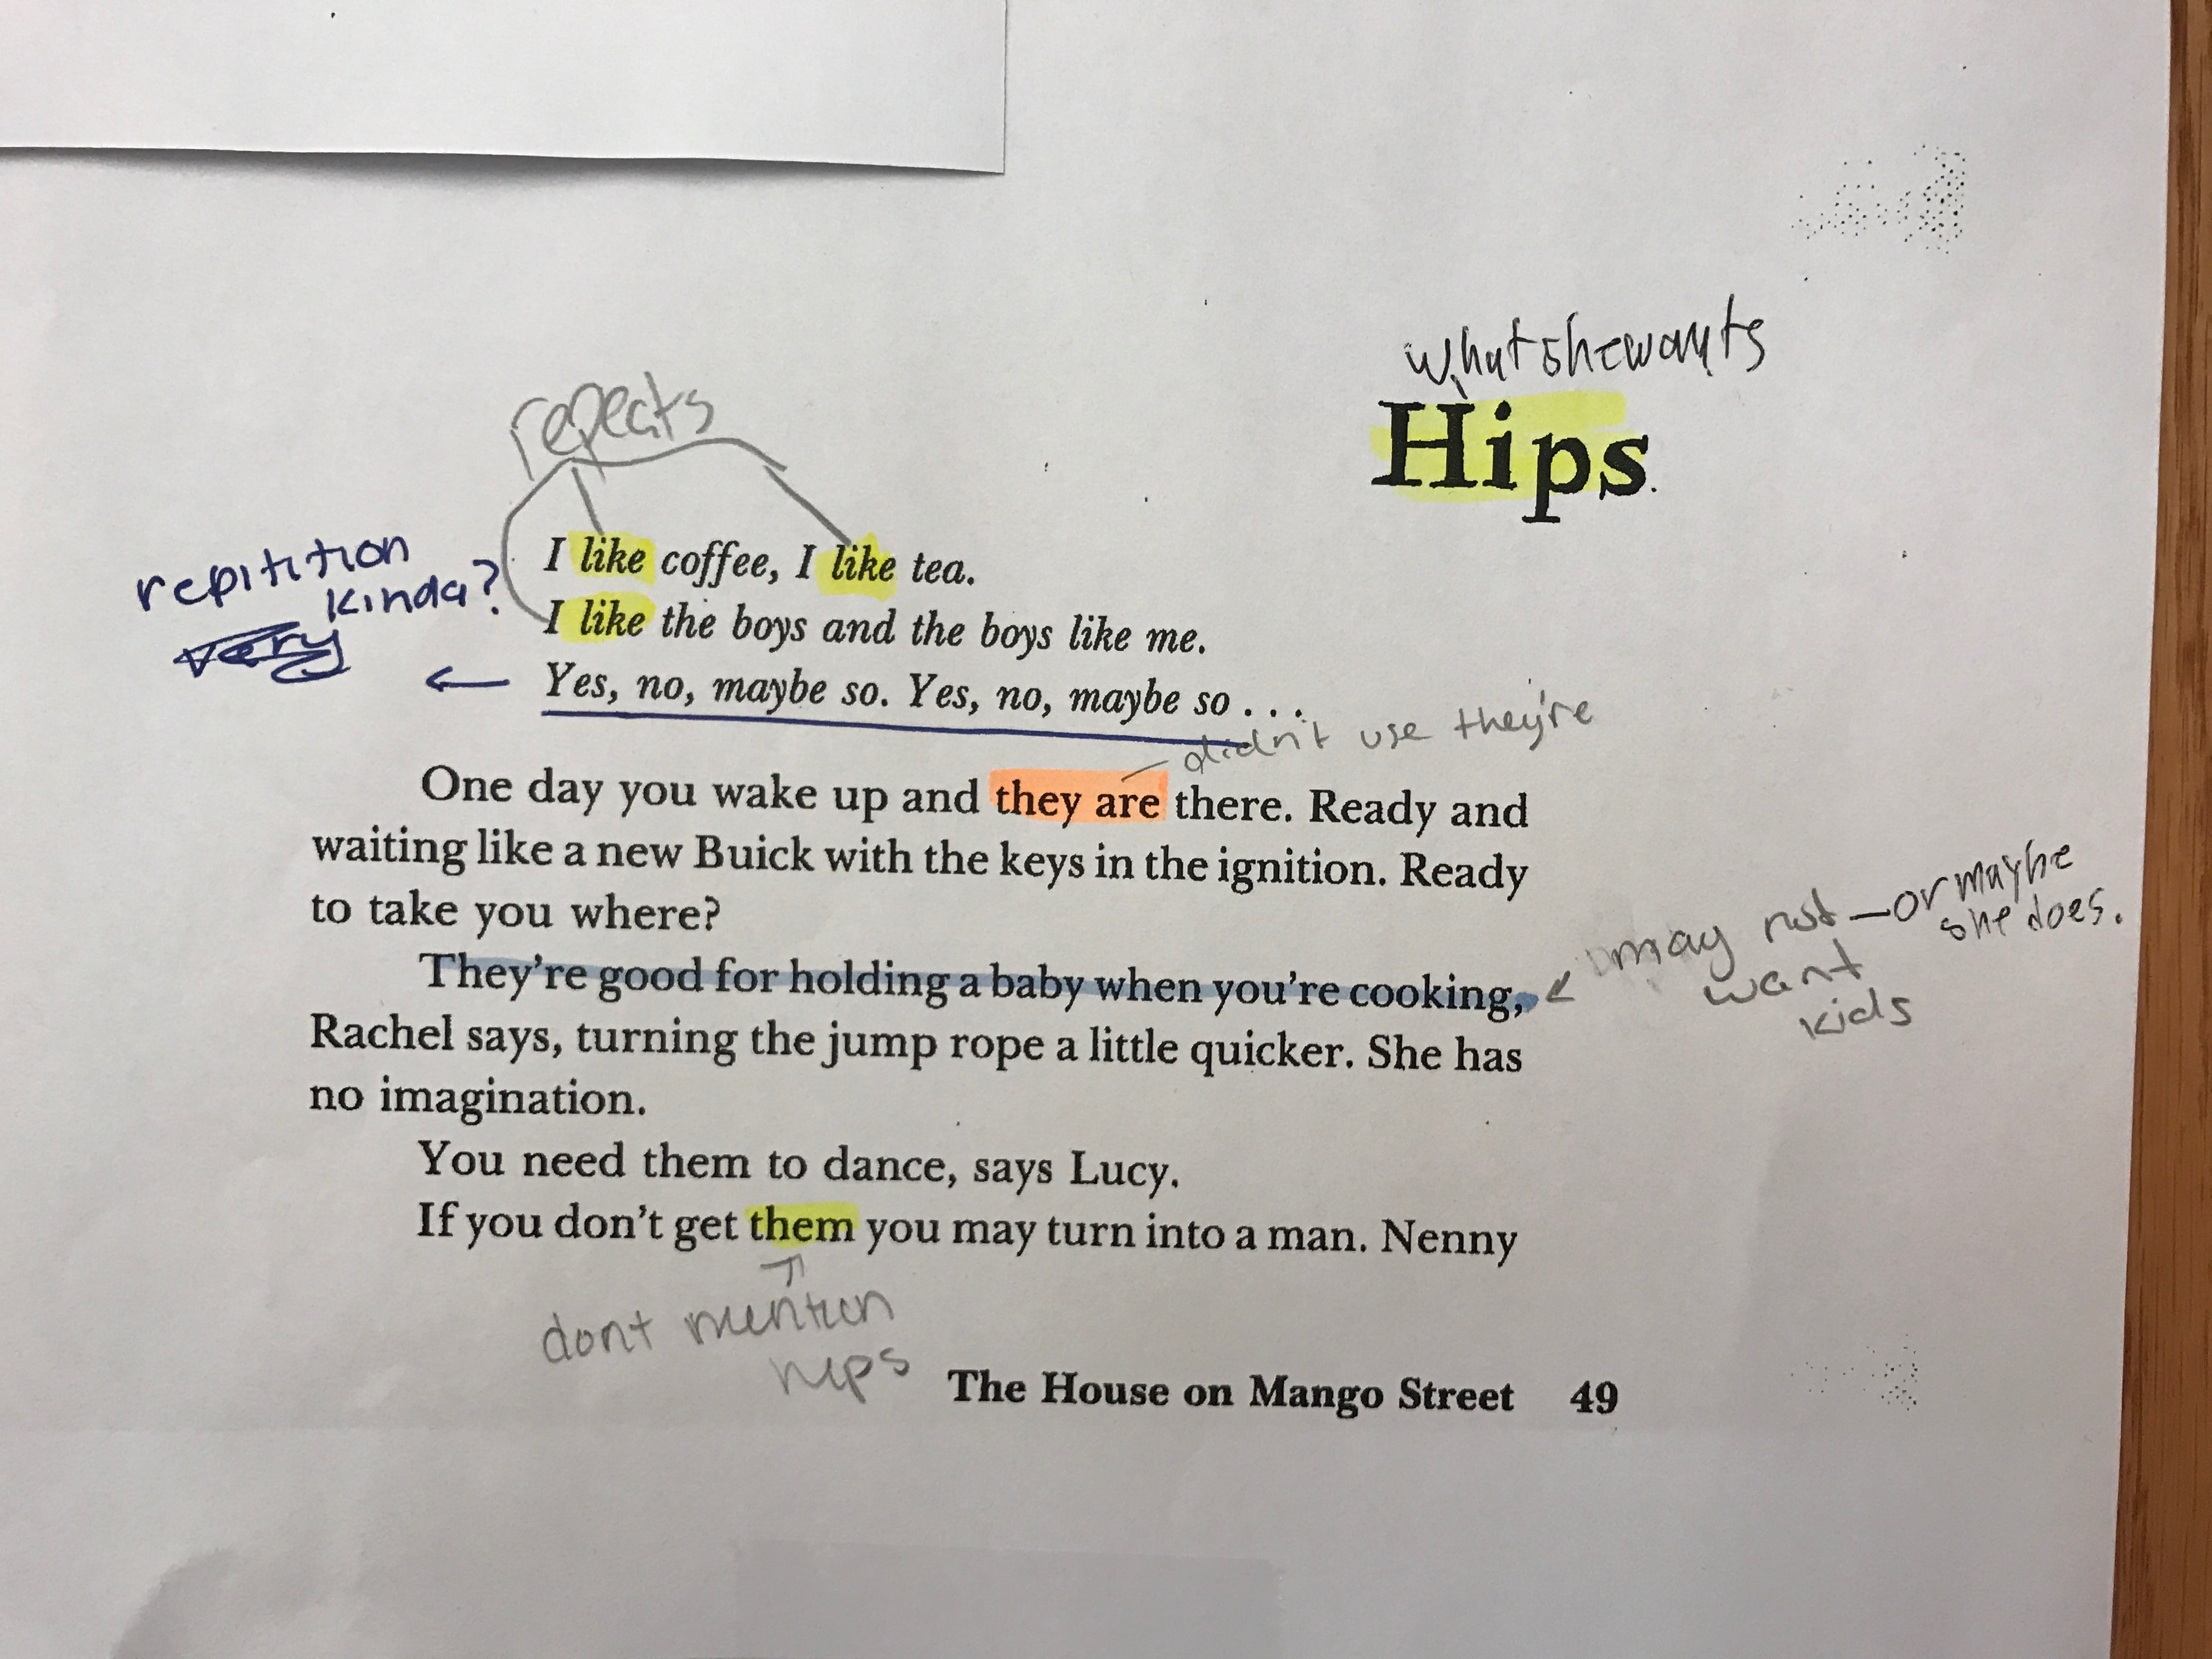 what she wants
Hips
repeats
I like coffee, I like tea.
repitition
kinda?
very
I like the boys and the boys like me.
Yes, no, maybe so. Yes, no, maybe so . . .
didn't use they're
One day you wake up and they are there. Ready and
waiting like a new Buick with the keys in the ignition. Ready
to take you where?
They're good for holding a baby when you're cooking,
may not — or maybe
she does.
want
kids
Rachel says, turning the jump rope a little quicker. She has
no imagination.
You need them to dance, says Lucy.
If you don't get them you may turn into a man. Nenny
dont mention
hips
The House on Mango Street 49